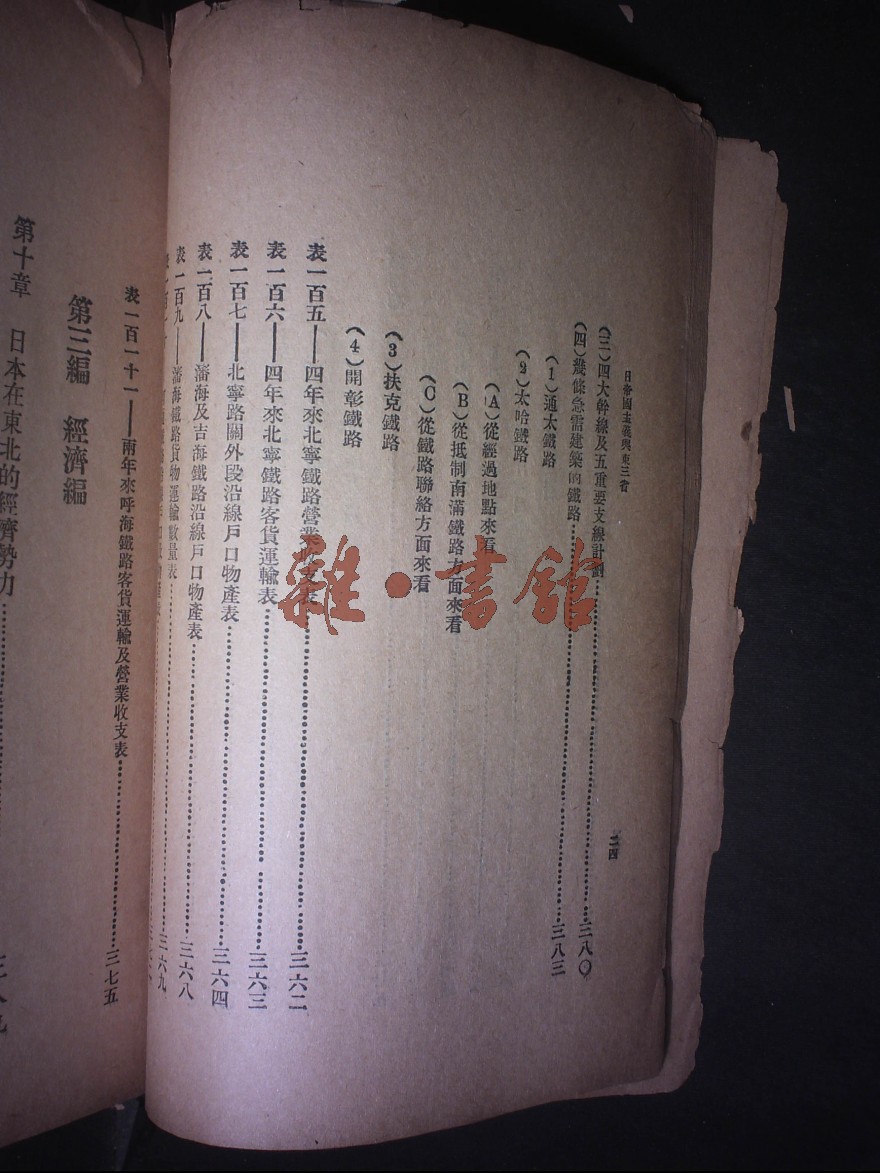 日帝國主義與東三省
二四
（三）四大幹線及五重要支線計劃……三八〇
（四）幾條急需建築的鐵路……三八三
（1）通太鐵路
（2）太哈鐵路
（A）從經過地點來看
（B）從抵制南滿鐵路方面來看
（C）從鐵路聯絡方面來看
（3）扶克鐵路
（4）開彰鐵路
表一百五——四年來北寧鐵路營業收支表……三六二
表一百六——四年來北寧鐵路客貨運輸表……三六三
表一百七——北寧路關外段沿線戶口物產表……三六四
表一百八——瀋海及吉海鐵路沿線戶口物產表……三六八
表一百九——瀋海鐵路貨物運輸數量表……三六九
表一百一十一——兩年來呼海鐵路客貨運輸及營業收支表……三七五
第三編　經濟編
第十章　日本在東北的經濟勢力……三八九
雜・書館